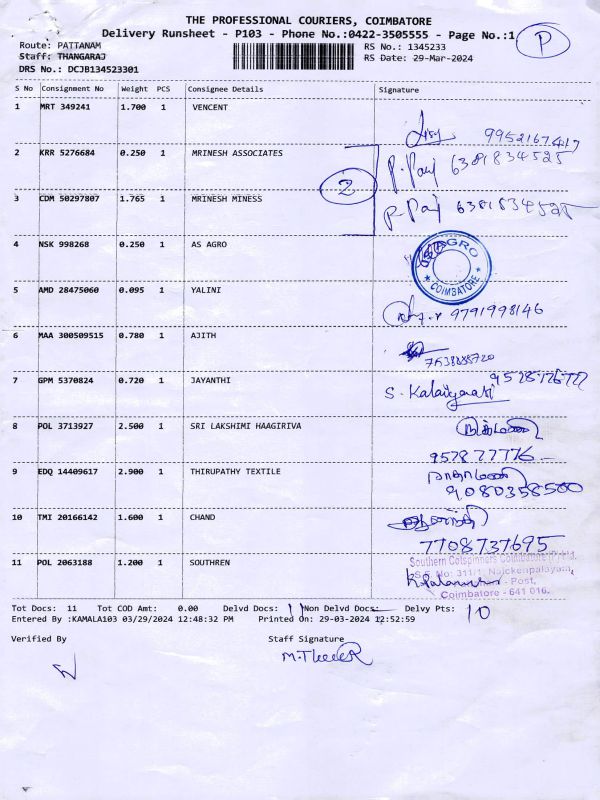 THE PROFESSIONAL COURIERS, COIMBATORE
Delivery Runsheet - P103 - Phone No.:0422-3505555 - Page No.:1
P
Route: PATTANAM
RS No.: 1345233
Staff: THANGARAJ
RS Date: 29-Mar-2024
DRS No.: DCJB134523301
S No Consignment No Weight PCS Consignee Details Signature
1 MRT 349241 1.700 1 VENCENT
9952167417
2 KRR 5276684 0.250 1 MRINESH ASSOCIATES
P. Paul 6381834525
2
3 CDM 50297807 1.765 1 MRINESH MINESS
P. Paul 6381834525
4 NSK 998268 0.250 1 AS AGRO
AGRO
COIMBATORE
5 AMD 28475060 0.095 1 YALINI
9791998146
6 MAA 300509515 0.780 1 AJITH
7538888720
7 GPM 5370824 0.720 1 JAYANTHI
S. Kalaiyarasi
8 POL 3713927 2.500 1 SRI LAKSHIMI HAAGIRIVA
957877776
9 EDQ 14409617 2.900 1 THIRUPATHY TEXTILE
9080358500
10 TMI 20166142 1.600 1 CHAND
7708737695
11 POL 2063188 1.200 1 SOUTHREN
Southern Cotspinners Coimbatore (P) Ltd.
S.F. No: 311/1, Naickenpalayam,
- Post,
Coimbatore - 641 016.
Tot Docs: 11 Tot COD Amt: 0.00 Delvd Docs: 11 Non Delvd Docs: Delvy Pts: 10
Entered By :KAMALA103 03/29/2024 12:48:32 PM Printed On: 29-03-2024 12:52:59
Verified By Staff Signature